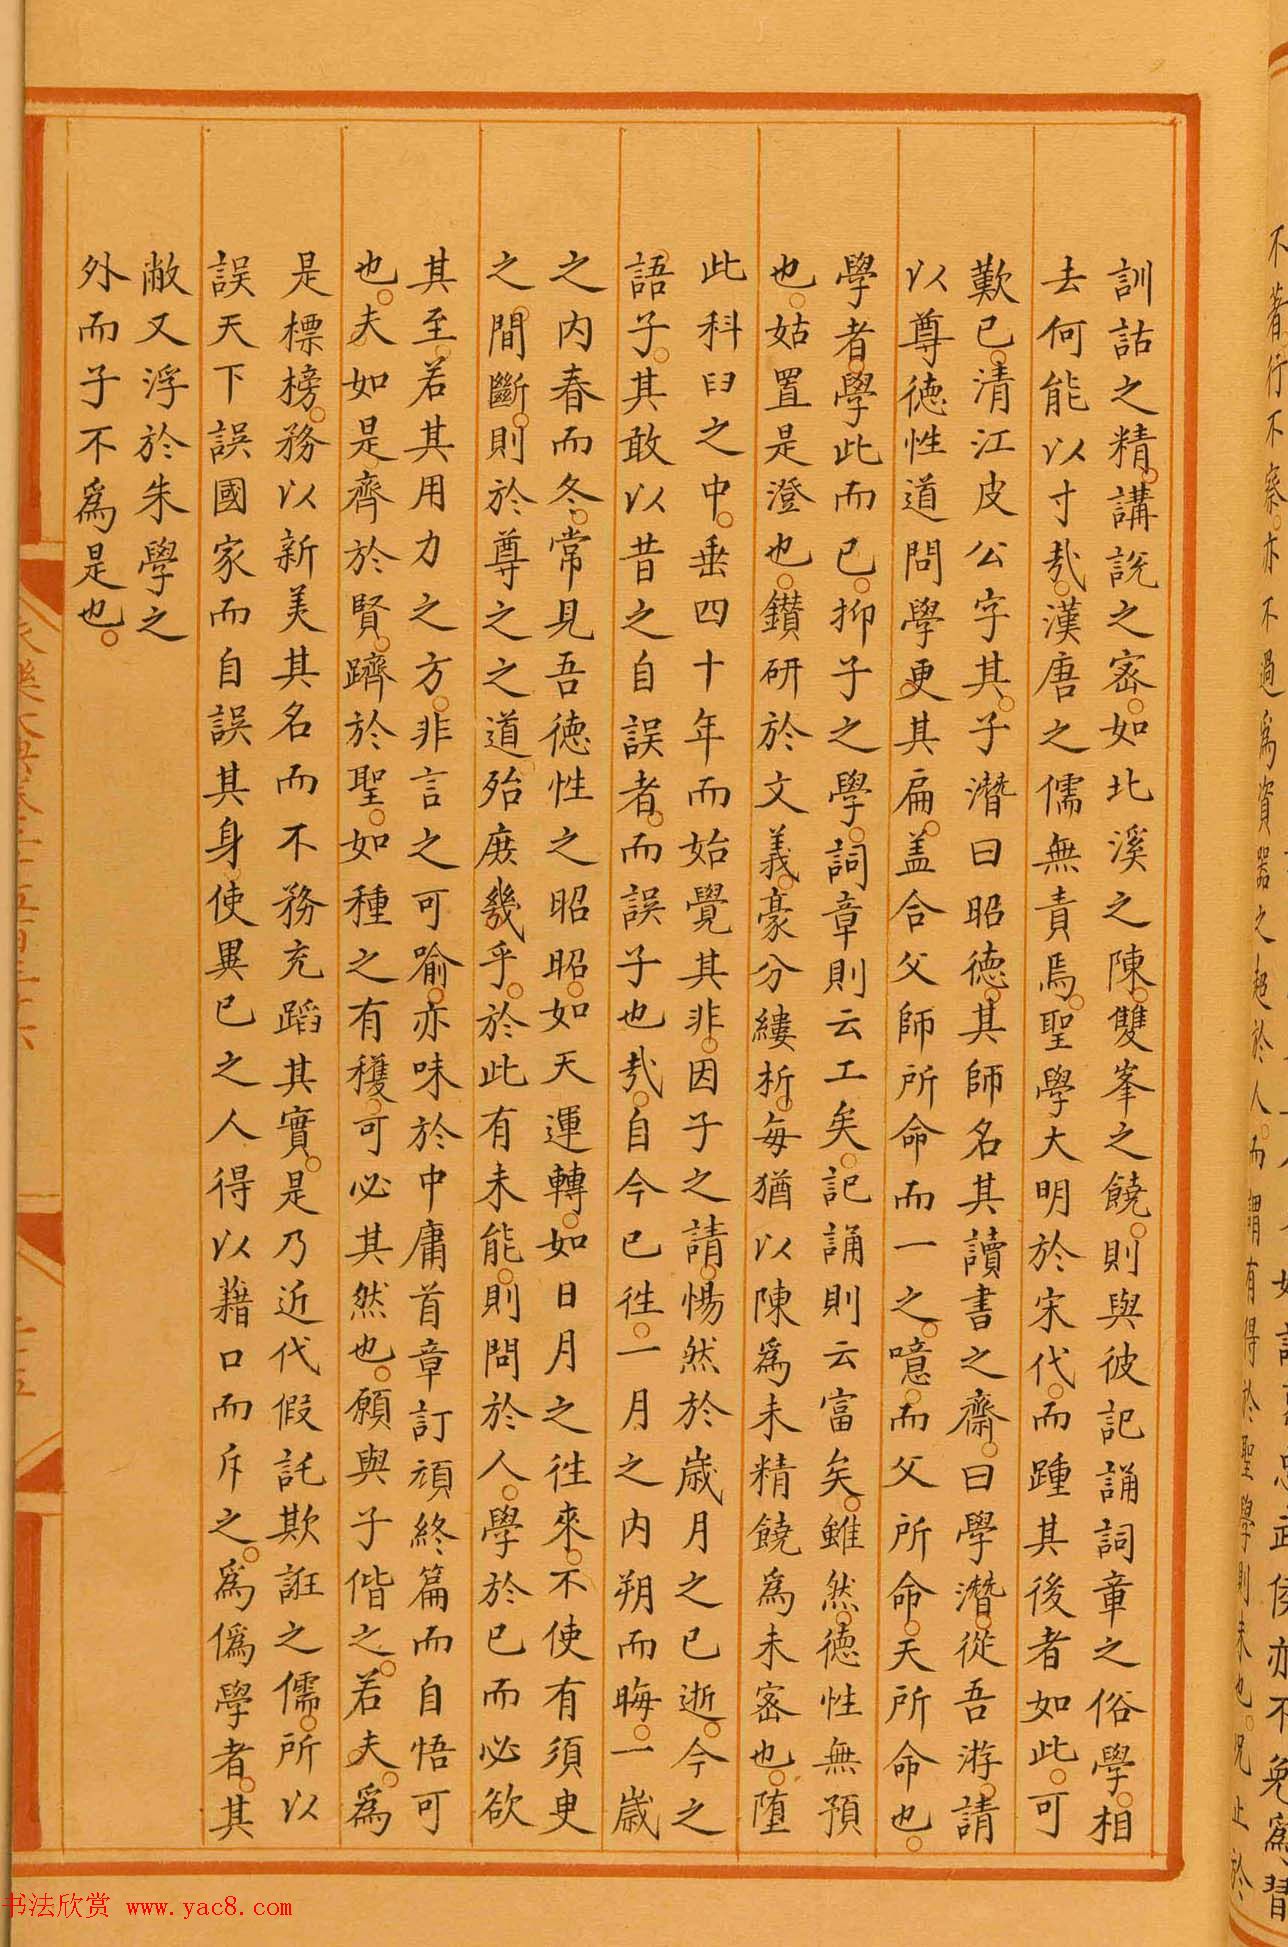 亦不免爲習
不著行不察。亦不過爲資器之超於人。而謂有得於聖學則未也。況止於
訓詁之精。講說之密。如北溪之陳。雙峯之饒。則與彼記誦詞章之俗學。相
去何能以寸哉。漢唐之儒無責焉。聖學大明於宋代。而踵其後者如此。可
歎已。清江皮公字其。子潛曰昭德。其師名其讀書之齋。曰學潛。從吾游。請
以尊德性道問學。更其扁。蓋合父師所命而一之。噫。而父所命。天所命也。
學者。學此而已。抑子之學。詞章則云工矣。記誦則云富矣。雖然。德性無預
也。姑置是澄也。鑽研於文義。豪分縷析。每猶以陳爲未精饒爲未密也。墮
此科臼之中。垂四十年而始覺其非。因子之請。惕然於歲月之已逝。今之
語子。其敢以昔之自誤者。而誤子也哉。自今已往。一月之内朔而晦。一歲
之内春而冬。常見吾德性之昭昭。如天運轉。如日月之往來。不使有須臾
之間斷。則於尊之之道殆庶幾乎。於此有未能。則問於人。學於已而必欲
其至。若其用力之方。非言之可喻。亦味於中庸首章訂頑終篇而自悟可
也。夫如是齊於賢。躋於聖。如種之有穫。可必其然也。願與子偕之。若夫。爲
是標榜。務以新美其名而不務充蹈其實。是乃近代假託欺誑之儒。所以
誤天下誤國家而自誤其身。使異已之人得以藉口而斥之。爲僞學者。其
敝又浮於朱學之
外而子不爲是也。
书法欣赏 www.yac8.com